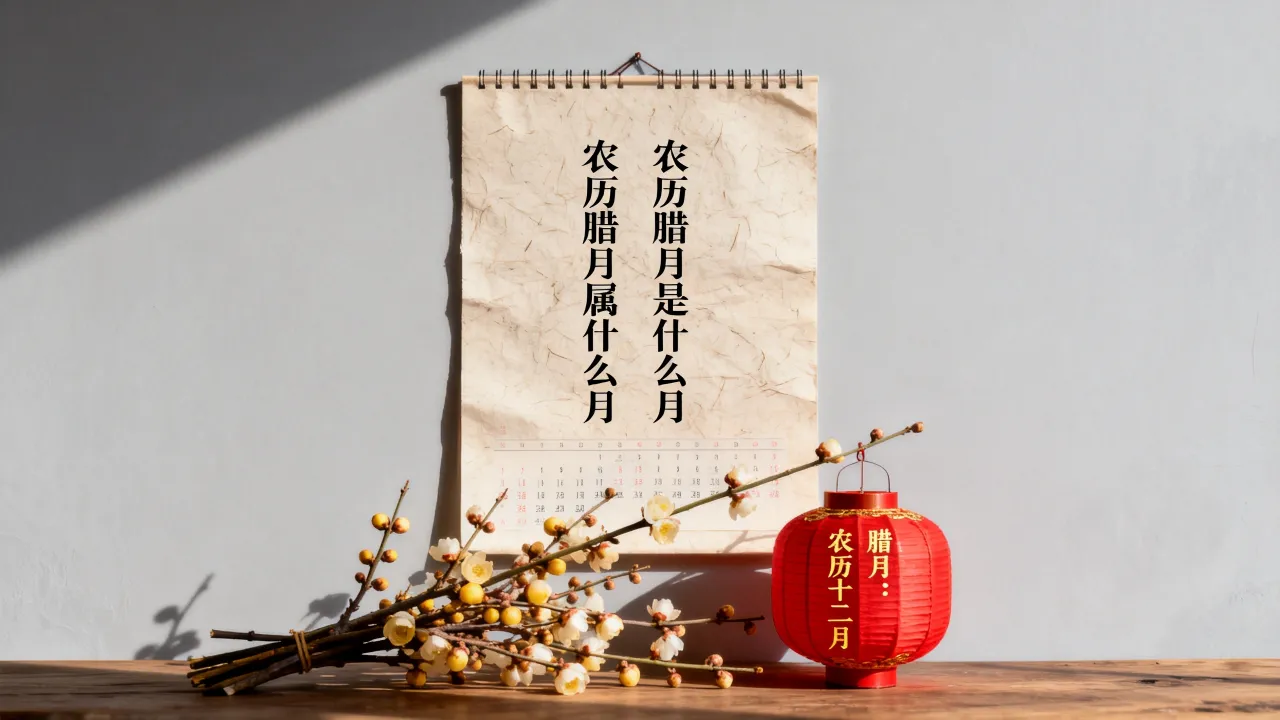 农历腊月是什么月
农历腊月属什么月
腊月：
农历十二月